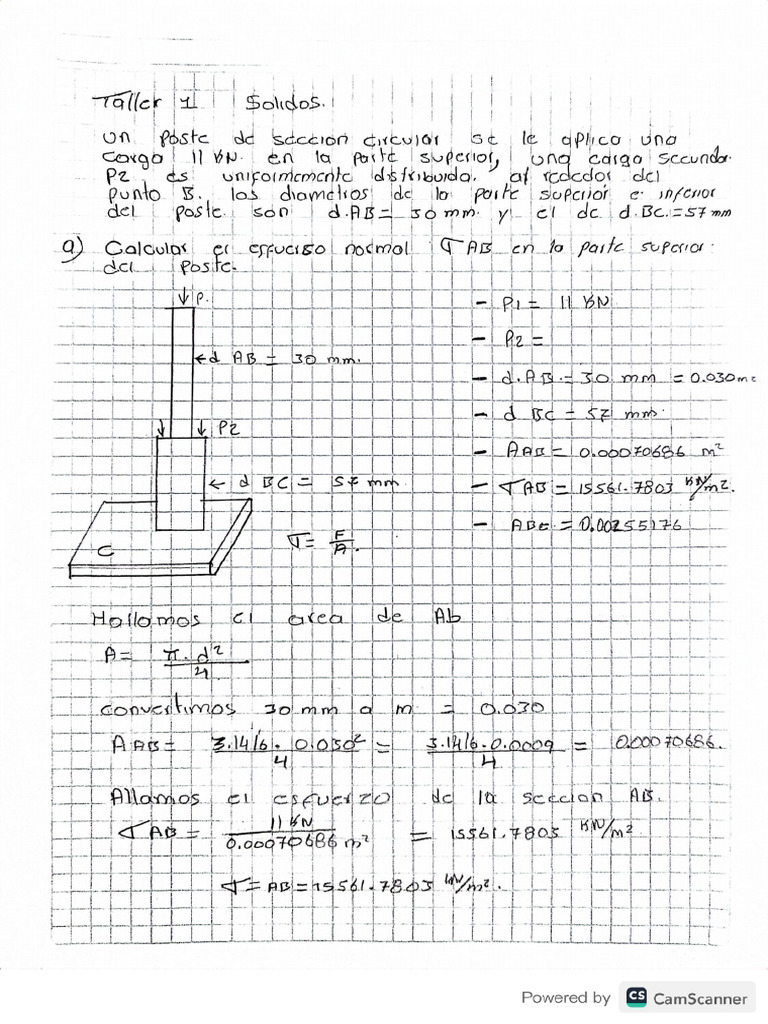 Taller 1 Solidos.
un poste de seccion circular se le aplica una
carga 11 KN. en la parte superior, una carga secunda.
P2 es uniformemente distribuida. al rededor del
punto B. los diametros de la parte superior e inferior
del poste son d.AB = 30 mm. y el de d.BC. = 57 mm
a) Calcular el esfuerso normal σ AB en la parte superior.
del poste.
↓ P.
- P1 = 11 KN
- P2 =
← d AB = 30 mm.
- d.AB. = 30 mm = 0.030 m
- d BC = 57 mm.
↓ ↓ P2
- AAB = 0.00070686 m²
← d BC = 57 mm.
- σ AB = 15561.7803 KN/m².
- ABC = 0.00255176
σ = F/A.
C
Hallamos el area de Ab
A = π. d²/4
convertimos 30 mm a m = 0.030
A AB = 3.1416 . 0.030²/4 = 3.1416 . 0.0009/4 = 0.00070686.
Allamos el esfuerzo de la seccion AB.
σ AB = 11 KN/0.00070686 m² = 15561.7803 KN/m²
σ = AB = 15561.7803 KN/m².
Powered by CS CamScanner